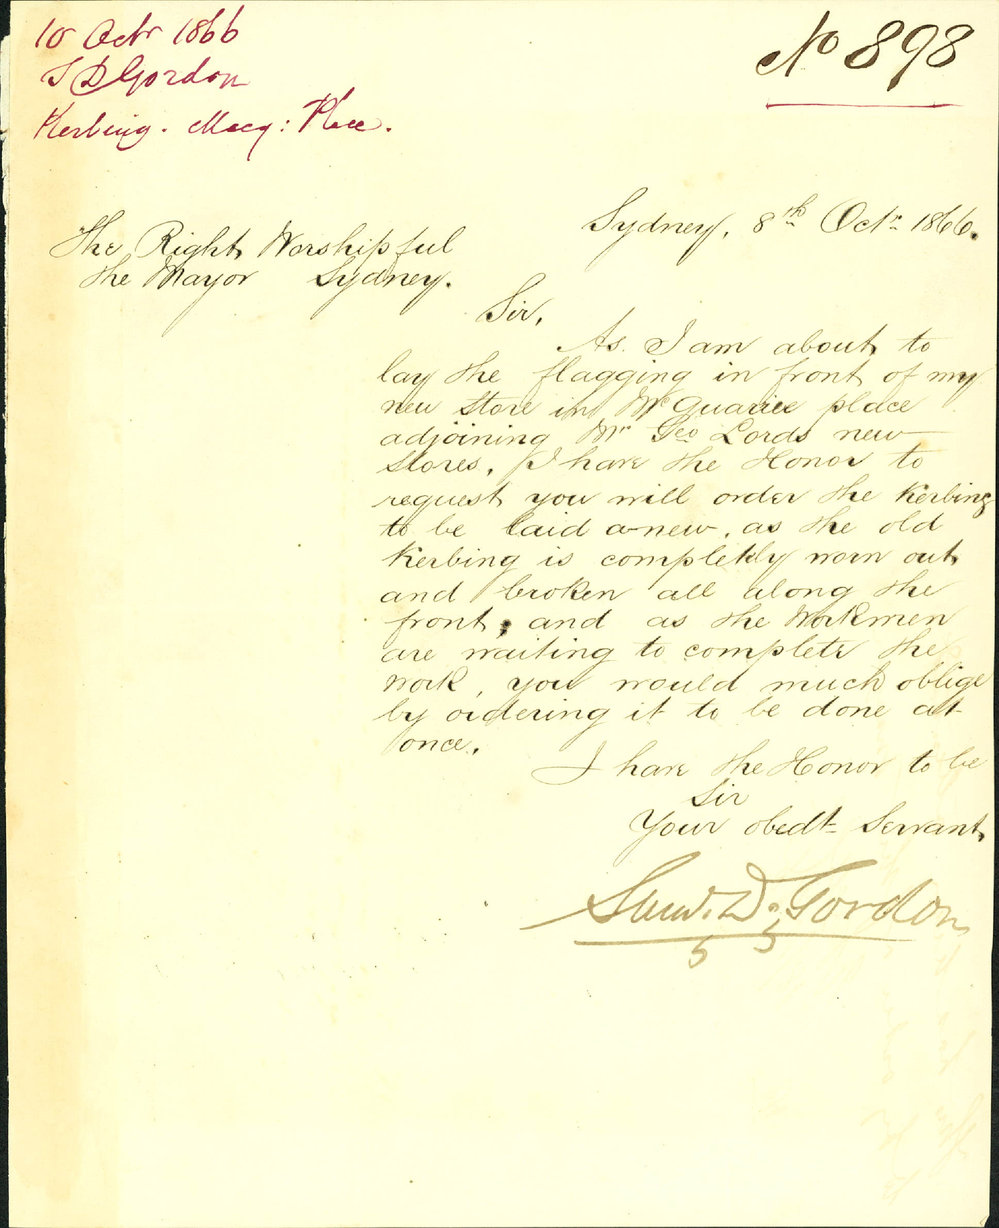 10 Octr 1866
S D Gordon
Kerbing. Macq: Place.
No 898
Sydney, 8th Octr 1866.
The Right Worshipful
the Mayor Sydney.
Sir,
As I am about to
lay the flagging in front of my
new store in McQuarie place
adjoining Mr Geo Lords new
stores, I have the Honor to
request you will order the Kerbing
to be laid a-new, as the old
Kerbing is completly worn out
and broken all along the
front, and as the Workmen
are waiting to complete the
work, you would much oblige
by ordering it to be done at
once.
I have the Honor to be
Sir
Your obedt Servant
Saml. D. Gordon